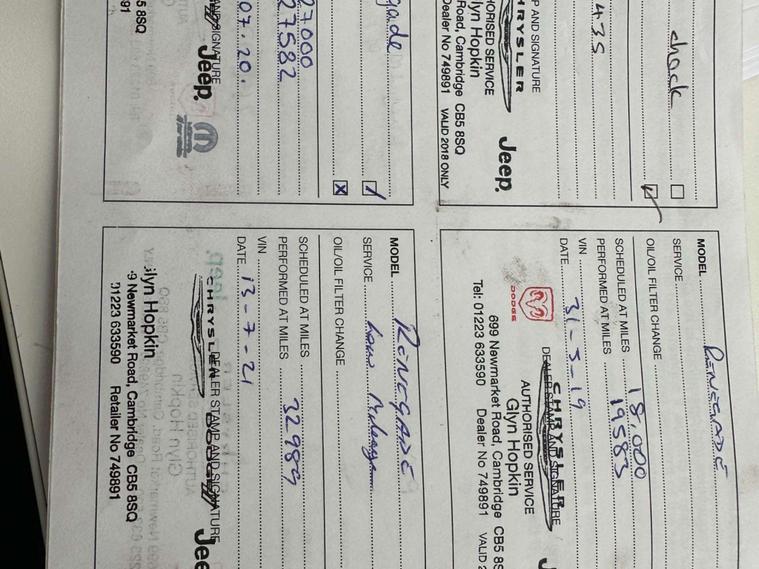 MODEL RENEGADE
SERVICE
OIL/OIL FILTER CHANGE
SCHEDULED AT MILES 18,000
PERFORMED AT MILES 19583
VIN
DATE 31-3-19
DEALER STAMP AND SIGNATURE
CHRYSLER
DODGE
AUTHORISED SERVICE
Glyn Hopkin
699 Newmarket Road, Cambridge CB5 8S
Tel: 01223 633590 Dealer No 749891 VALID 2
MODEL RENEGADE
SERVICE
OIL/OIL FILTER CHANGE
SCHEDULED AT MILES
PERFORMED AT MILES 32989
VIN
DATE 13-7-21
DEALER STAMP AND SIGNATURE
CHRYSLER
Jee
Glyn Hopkin
9 Newmarket Road, Cambridge CB5 8SQ
01223 633590 Retailer No 749891
check
435
P AND SIGNATURE
CHRYSLER
Jeep
HORISED SERVICE
lyn Hopkin
Road, Cambridge CB5 8SQ
Dealer No 749891 VALID 2018 ONLY
gade
X
27000
27582
07.20.
AND SIGNATURE
Jeep
5 8SQ
91